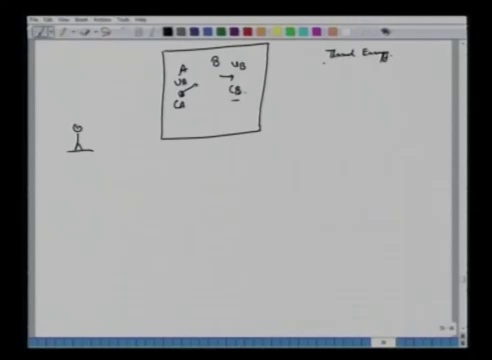 File Edit View Insert Actions Tools Help
A B UB
UA
CB
CA
Thermal Energy